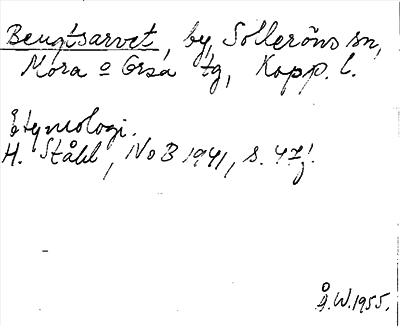 Bengtsarvet, by, Solleröns sn,
Mora o Orsa tg, Kopp. l.
Etymologi.
H. Ståhl, NoB 1941, s. 47f.
Å.W. 1955.